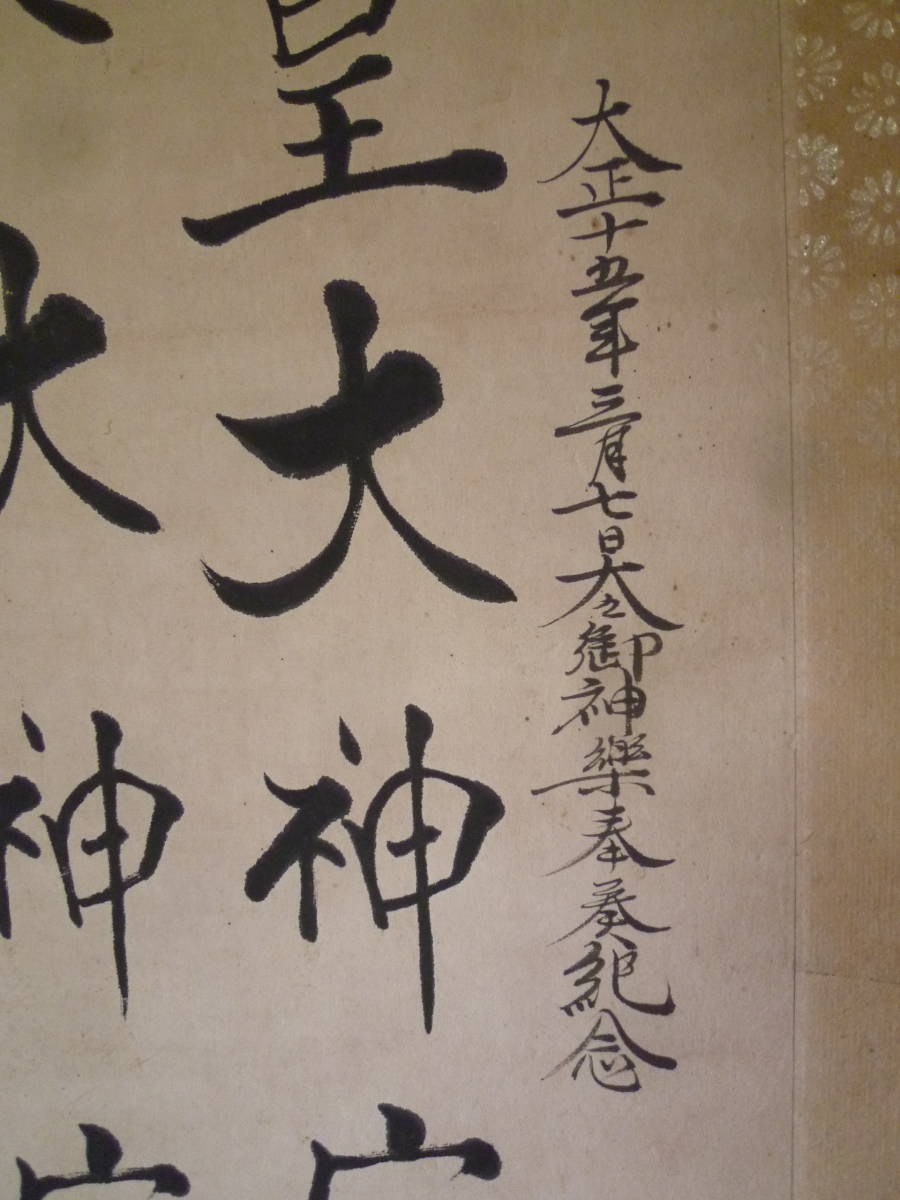 大正十五年三月七日大々御神樂奉奏紀念
皇大神
大神